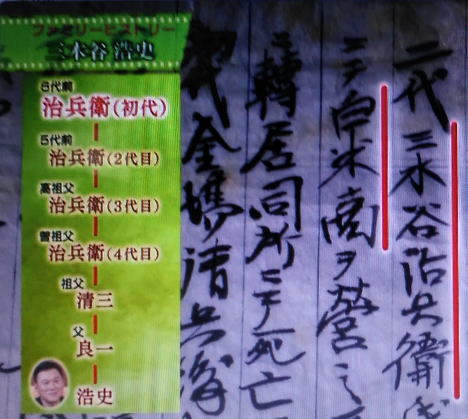 ファミリーヒストリー
三木谷 浩史
6代前
治兵衛(初代)
5代前
治兵衛(2代目)
高祖父
治兵衛(3代目)
曽祖父
治兵衛(4代目)
祖父
清三
父
良一
浩史
二代三木谷治兵衛
ニテ白米商ヲ営
ニ轉居同所ニテ死亡